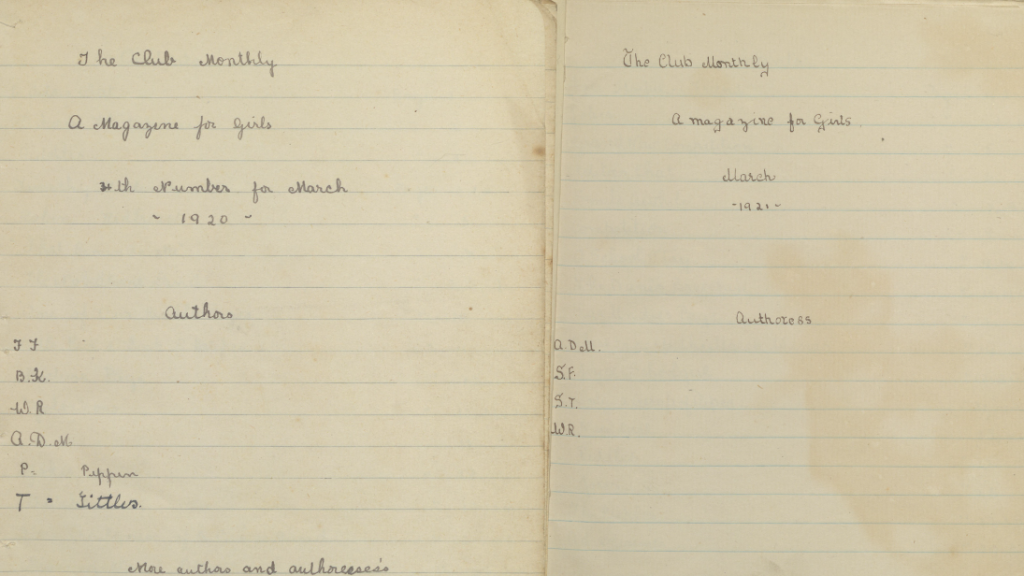 The Club Monthly
A Magazine for Girls
4th Number for March
~ 1920 ~
Authors
F F
B.K.
W.R
A.D.M
P= Peppin
T = Tittles.
More authors and authoresses's
The Club Monthly
A magazine for Girls.
March
-1921-
Authoress
A.D.M.
S.F.
S.T.
W.R.